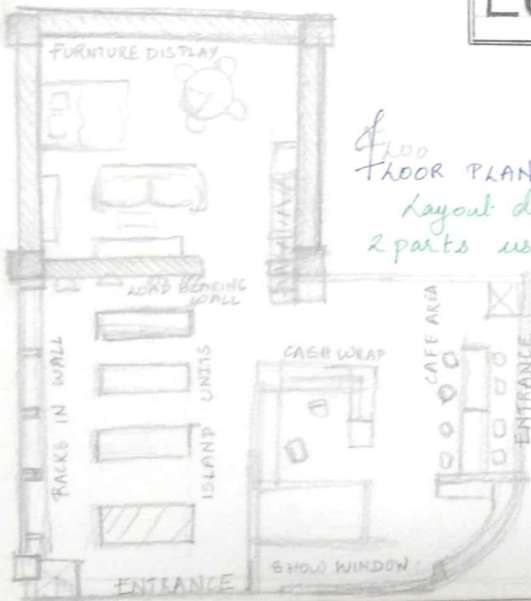 FURNITURE DISPLAY
FLOOR PLAN
Layout
2 parts
LOAD BEARING
WALL
RACKS IN WALL
ISLAND UNITS
CASH WRAP
CAFE AREA
ENTRANCE
SHOW WINDOW
ENTRANCE